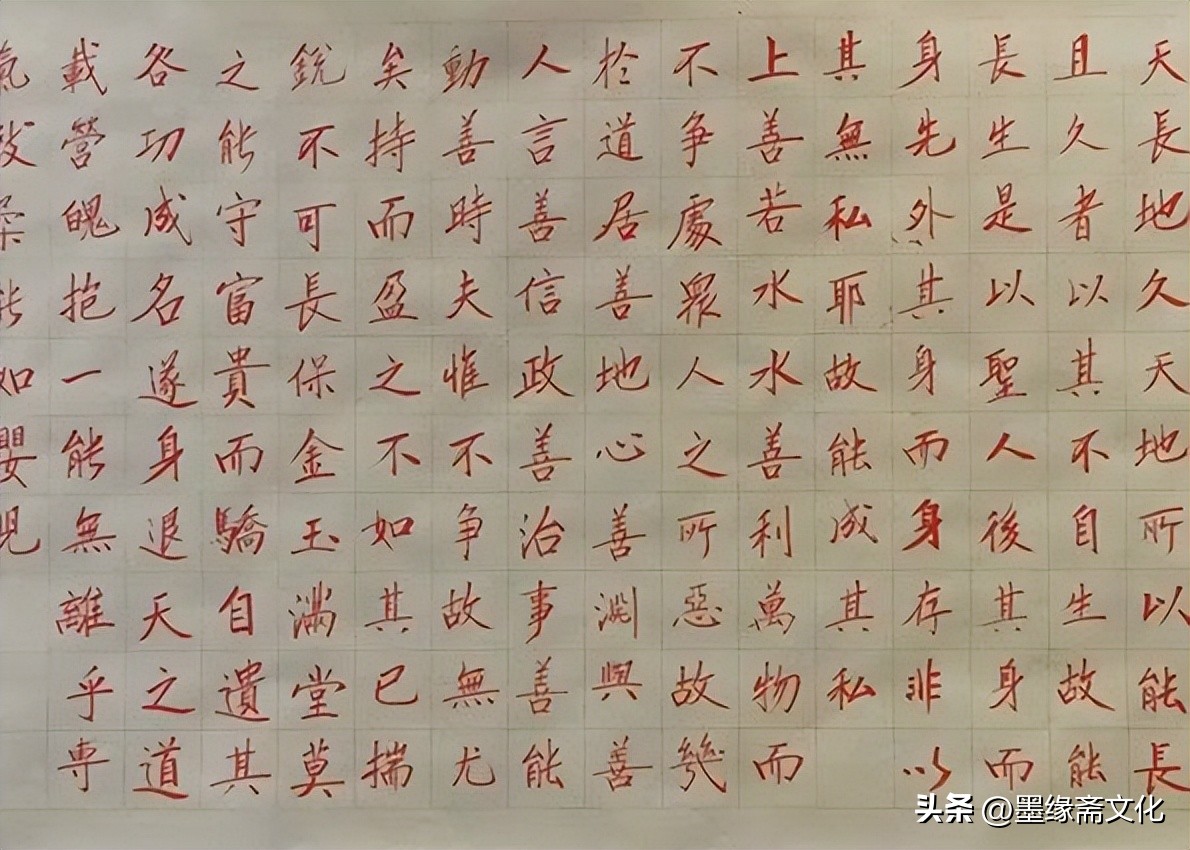 天長地久天地所以能長
且久者以其不自生故能
長生是以聖人後其身而
身先外其身而身存非以
其無私耶故能成其私
上善若水水善利萬物而
不争處衆人之所惡故幾
於道居善地心善淵與善
人言善信政善治事善能
動善時夫惟不争故無尤
矣持而盈之不如其已揣
銳不可長保金玉滿堂莫
之能守富貴而驕自遺其
咎功成名遂身退天之道
載營魄抱一能無離乎専
氣致柔能如嬰兒
头条 @墨缘斋文化